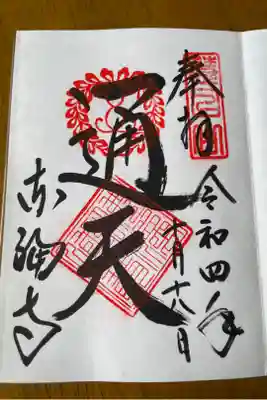 奉拝
令和四年
十月十六日
通天
東福寺